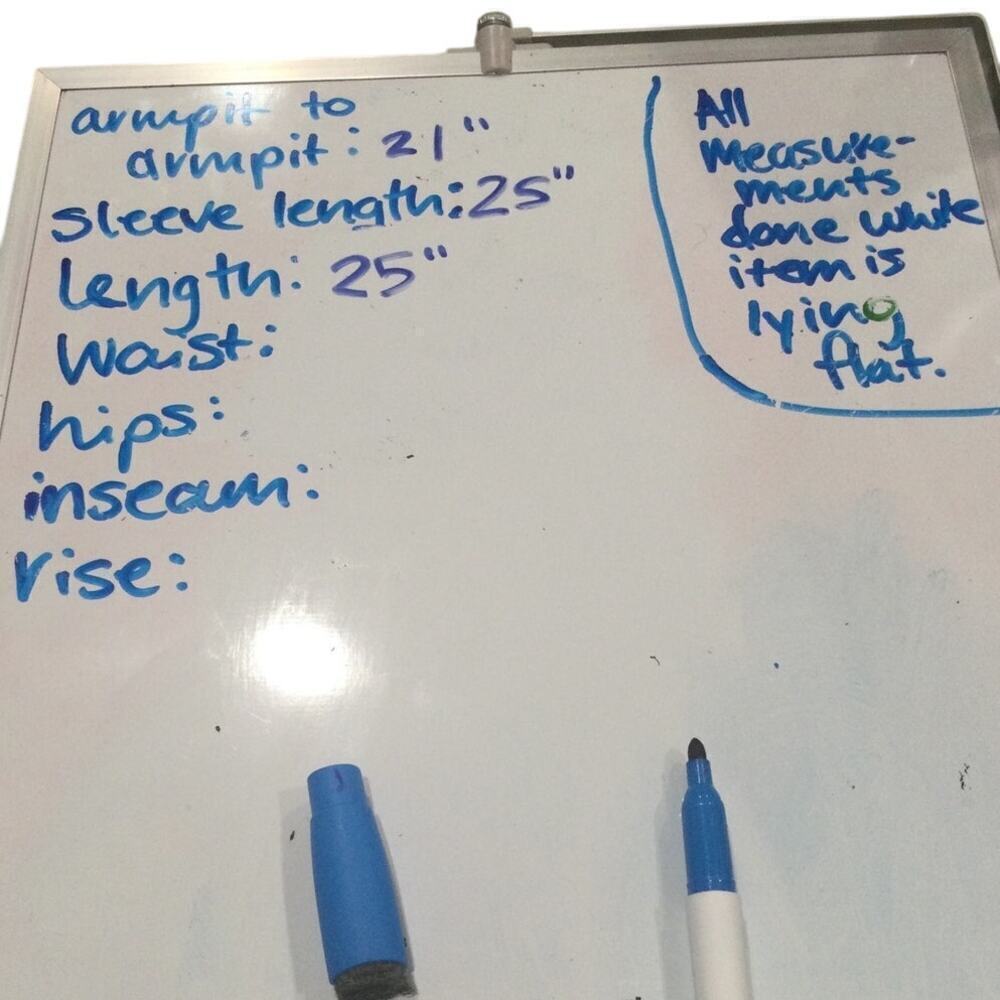 armpit to
armpit: 21"
sleeve length: 25"
length: 25"
Waist:
hips:
inseam:
rise:
All
measure-
ments
done while
item is
lying
flat.